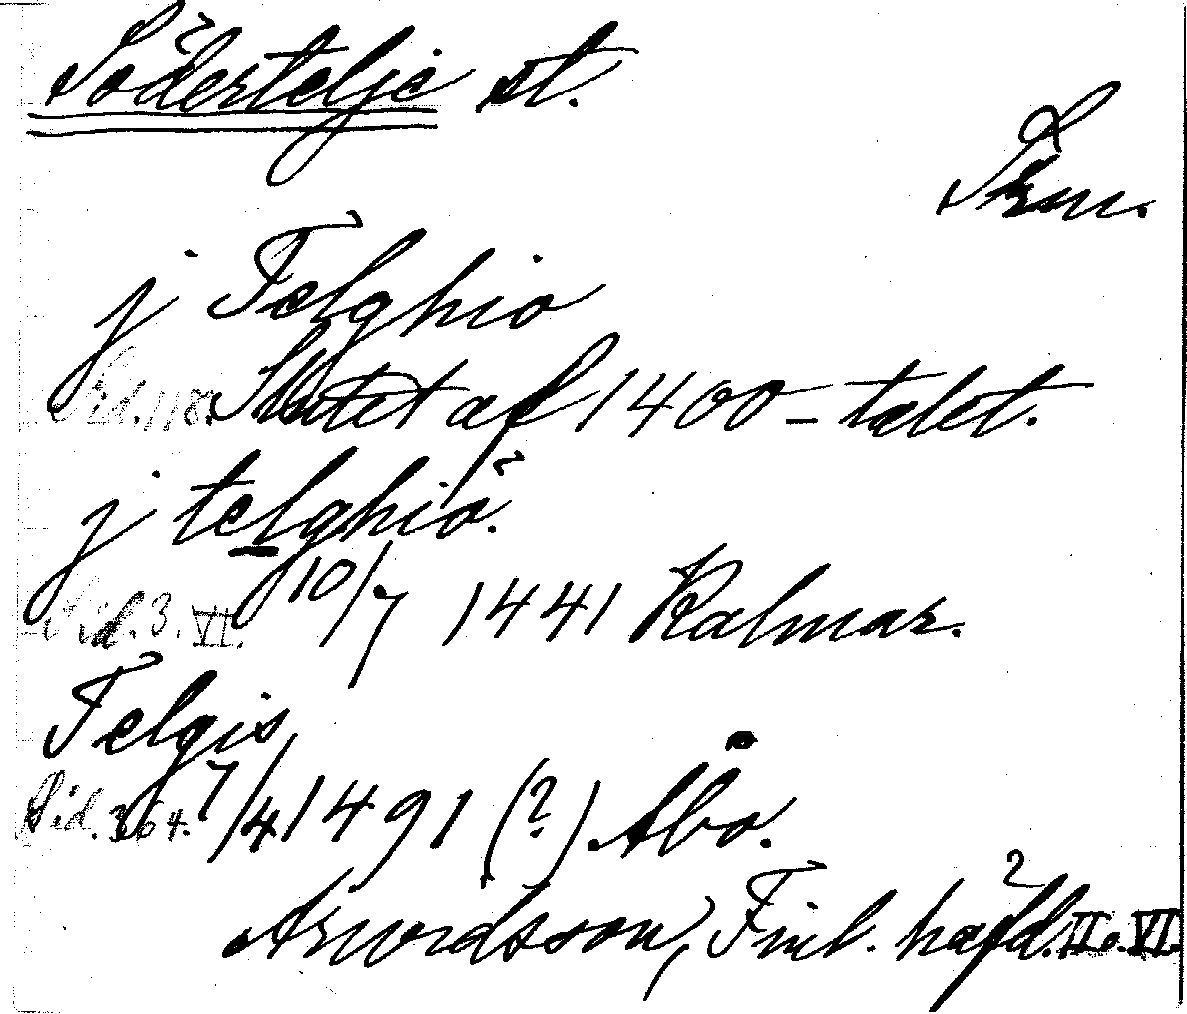 Södertelje st.
Srm.
j Telghio
Sid. 118. Slutet af 1400-talet.
j telghiö.
Sid. 3. VI. 10/7 1441 Kalmar.
Telgis
Sid. 364. 7/4 1491 (?). Åbo.
Arwidsson, Finl. häfd. II o. VI.